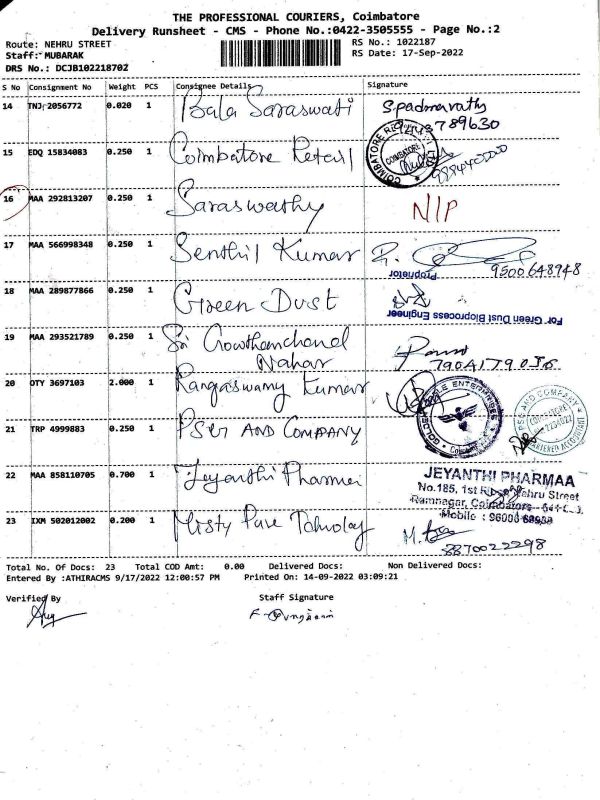 THE PROFESSIONAL COURIERS, Coimbatore
Delivery Runsheet - CMS - Phone No.:0422-3505555 - Page No.:2
Route: NEHRU STREET
RS No.: 1022187
Staff: MUBARAK
RS Date: 17-Sep-2022
DRS No.: DCJB10221870Z
S No Consignment No Weight PCS Consignee Details Signature
14 TNJ 2056772 0.020 1 Bala Saraswati S.padmavathy
789630
15 EDQ 15834083 0.250 1 Coimbatore Retail
COIMBATORE
16 MAA 292813207 0.250 1 Saraswathy N/P
17 MAA 566998348 0.250 1 Senthil Kumar
9500648948
Proprietor
18 MAA 289877866 0.250 1 Green Dust
For Green Dust Bioprocess Engineer
19 MAA 293521789 0.250 1 Sri Gowthamchand
Nahar
20 OTY 3697103 2.000 1 Rangaswamy Kumar
ENTERPRISES
21 TRP 4999883 0.250 1 PSG AND COMPANY
AND COMPANY
COIMBATORE
CHARTERED ACCOUNTANT
22 MAA 858110705 0.700 1 Jeyanthi Pharmei
JEYANTHI PHARMAA
No.185, 1st Nehru Street
Ramnagar, Coimbatore
Mobile :
23 IXM 502012002 0.200 1 Misty Pave
8870022298
Total No. Of Docs: 23 Total COD Amt: 0.00 Delivered Docs: Non Delivered Docs:
Entered By :ATHIRACMS 9/17/2022 12:00:57 PM Printed On: 14-09-2022 03:09:21
Verified By Staff Signature